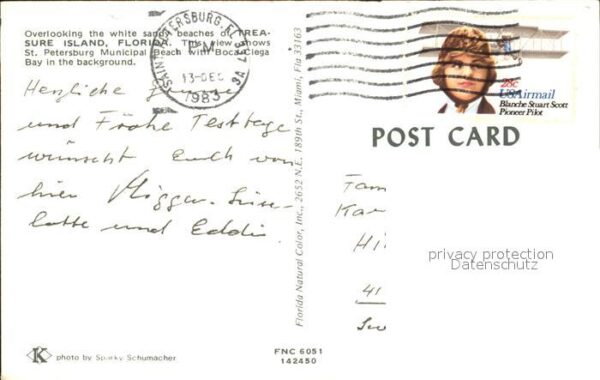 Overlooking the white sandy beaches of TREA-
SURE ISLAND, FLORIDA. This view shows
St. Petersburg Municipal Beach with Boca Ciega
Bay in the background.
SAINT PETERSBURG, FL 337
PM
13 DEC
1983
28c
USAirmail
Blanche Stuart Scott
Pioneer Pilot
POST CARD
Herzliche
und Frohe Festtage
wünscht Euch von
hier
lotte und Eddi.
Florida Natural Color, Inc., 2652 N.E. 189th St., Miami, Fla 33163
Fam
Kar
Hi
41
privacy protection
Datenschutz
K photo by Sparky Schumacher
FNC 6051
142450